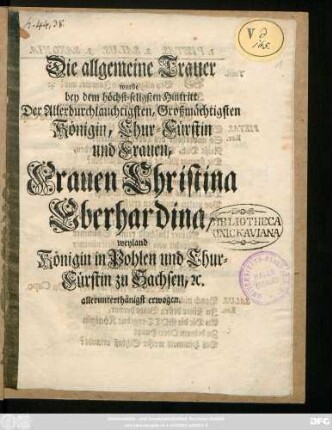 h. 44, 38.
Die allgemeine Trauer
wurde
bey dem höchst-seligsten Hintritt
Der Allerdurchlauchtigsten, Großmächtigsten
Königin, Chur-Fürstin
und Frauen,
Frauen Christina
Eberhardina,
weyland
Königin in Pohlen und Chur-
Fürstin zu Sachsen, ꝛc.
allerunterthänigst erwogen.
BIBLIOTHECA
PONICKAVIANA